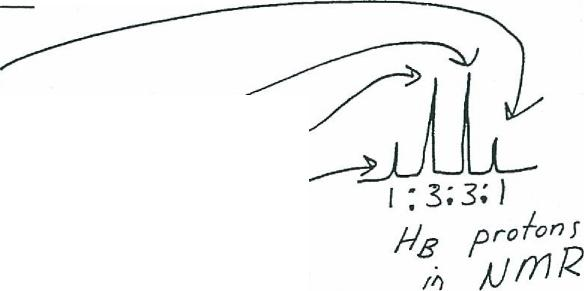 1:3:3:1
HB protons
in NMR